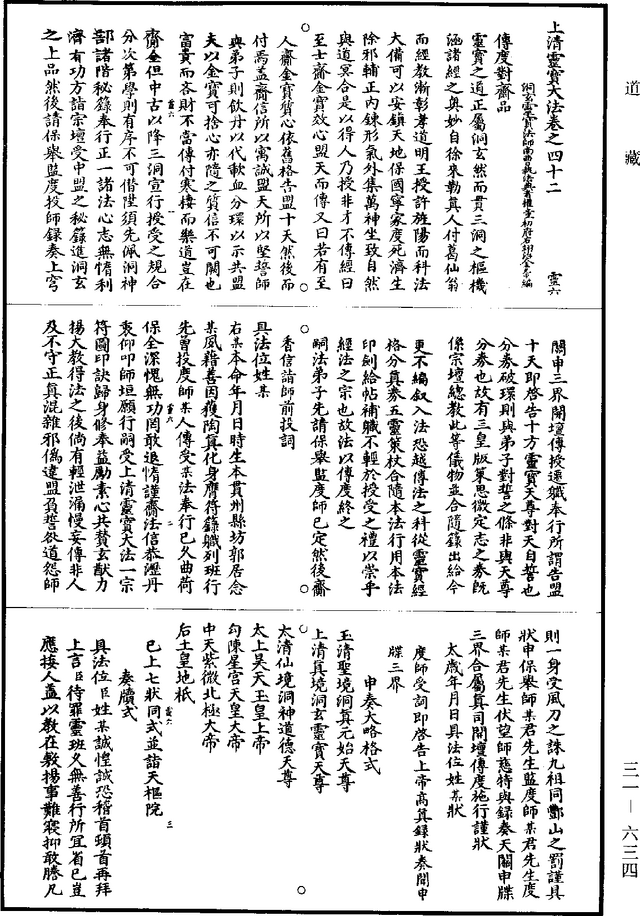 道藏
上清靈寶大法卷之四十二
靈六
洞玄靈寶法師南曹執法典者權童初府右翊治金允中編
傳度對齋品
靈寶之道正屬洞玄然而貫三洞之樞機
涵諸經之奧妙自徐來勒真人付葛仙翁
而經教漸彰孝道明王授許旌陽而科法
大備可以安鎮天地保國寧家度死濟生
除邪輔正內鍊形氣外集萬神坐致自然
與道冥合是以得人乃授非才不傳經曰
至士齎金寶效心盟天而傳又曰若有至
人齎金寶質心依舊格告盟十天然後而
付焉蓋齎信所以寓誠盟天所以堅誓師
與弟子則飲丹以代歃血分環以示共盟
夫以金寶可捨心亦隨之質信不可闕也
富貴而吝財不當傳付寒棲而樂道豈在
齎金但中古以降三洞宣行授受之規合
分次第學則有序不可僭陞須先佩洞神
部諸階秘籙奉行正一諸法心志無惰利
濟有功方詣宗壇受中盟之秘籙進洞玄
之上品然後請保舉監度投師錄奏上穹
關申三界開壇傳授遷職奉行所謂告盟
十天即啓告十方靈寶天尊對天自誓也
分券破環則與弟子對誓之條非與天尊
分券也故有三皇版策思微定志之券既
係宗壇總教此等儀物並合隨籙出給今
更不編叙入法恐越傳法之科從靈寶經
格分真券五靈策杖合隨本法行用本法
印劍給帖補職不輕於授受之禮以崇乎
經法之宗也故法以傳度終之
嗣法弟子先請保舉監度師已定然後齎
香信詣師前投詞
具法位姓某
右某本命年月日時生本貫州縣坊郭居念
某夙藉善因獲陶真化身膺符籙職列班行
先曾投度師某人傳受某法奉行已久曲荷
保全深愧無功罔敢退惰謹齎法信恭瀝丹
衷仰叩師垣願行嗣受上清靈寶大法一宗
符圖印訣歸身修奉益勵素心共贊玄猷力
揚大教得法之後倘有輕泄漏慢妄傳非人
及不守正真混雜邪偽違盟負誓欲道怨師
則一身受風刀之誅九祖同酆山之罰謹具
狀申保舉師某君先生監度師某君先生度
師某君先生伏望師慈特與錄奏天闕申牒
三界合屬真司開壇傳度施行謹狀
太歲年月日具法位姓某狀
度師受詞即啓告上帝高真錄狀奏聞申
牒三界
申奏大略格式
玉清聖境洞真元始天尊
上清真境洞玄靈寶天尊
太清仙境洞神道德天尊
太上昊天玉皇上帝
勾陳星宮天皇大帝
中天紫微北極大帝
后土皇地祇
已上七狀同式並詣天樞院
奏牘式
具法位臣姓某誠惶誠恐稽首頓首再拜
上言臣待罪靈班久無善行所宜省己豈
應接人蓋以教在敷揚事難寢抑敢瀝凡
三一—六三四